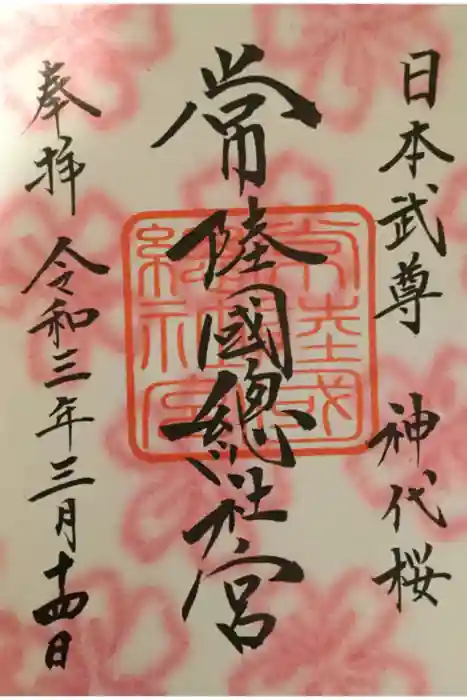 日本武尊 神代桜
常陸國總社宮
奉拝 令和三年三月十四日
常陸國
總社宮